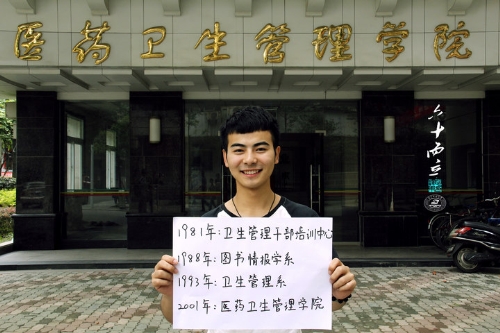 医药卫生管理学院
六十而立
1981年:卫生管理干部培训中心
1988年:图书情报学系
1993年:卫生管理系
2001年:医药卫生管理学院